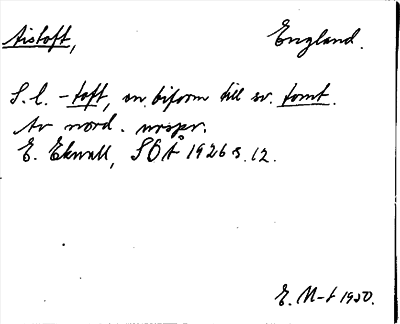 Aistoft, England.
S. l. -toft, en biform till sv. tomt.
Av nord. urspr.
E. Ekwall, SOÅ 1926 s. 12.
E. M-t 1950.